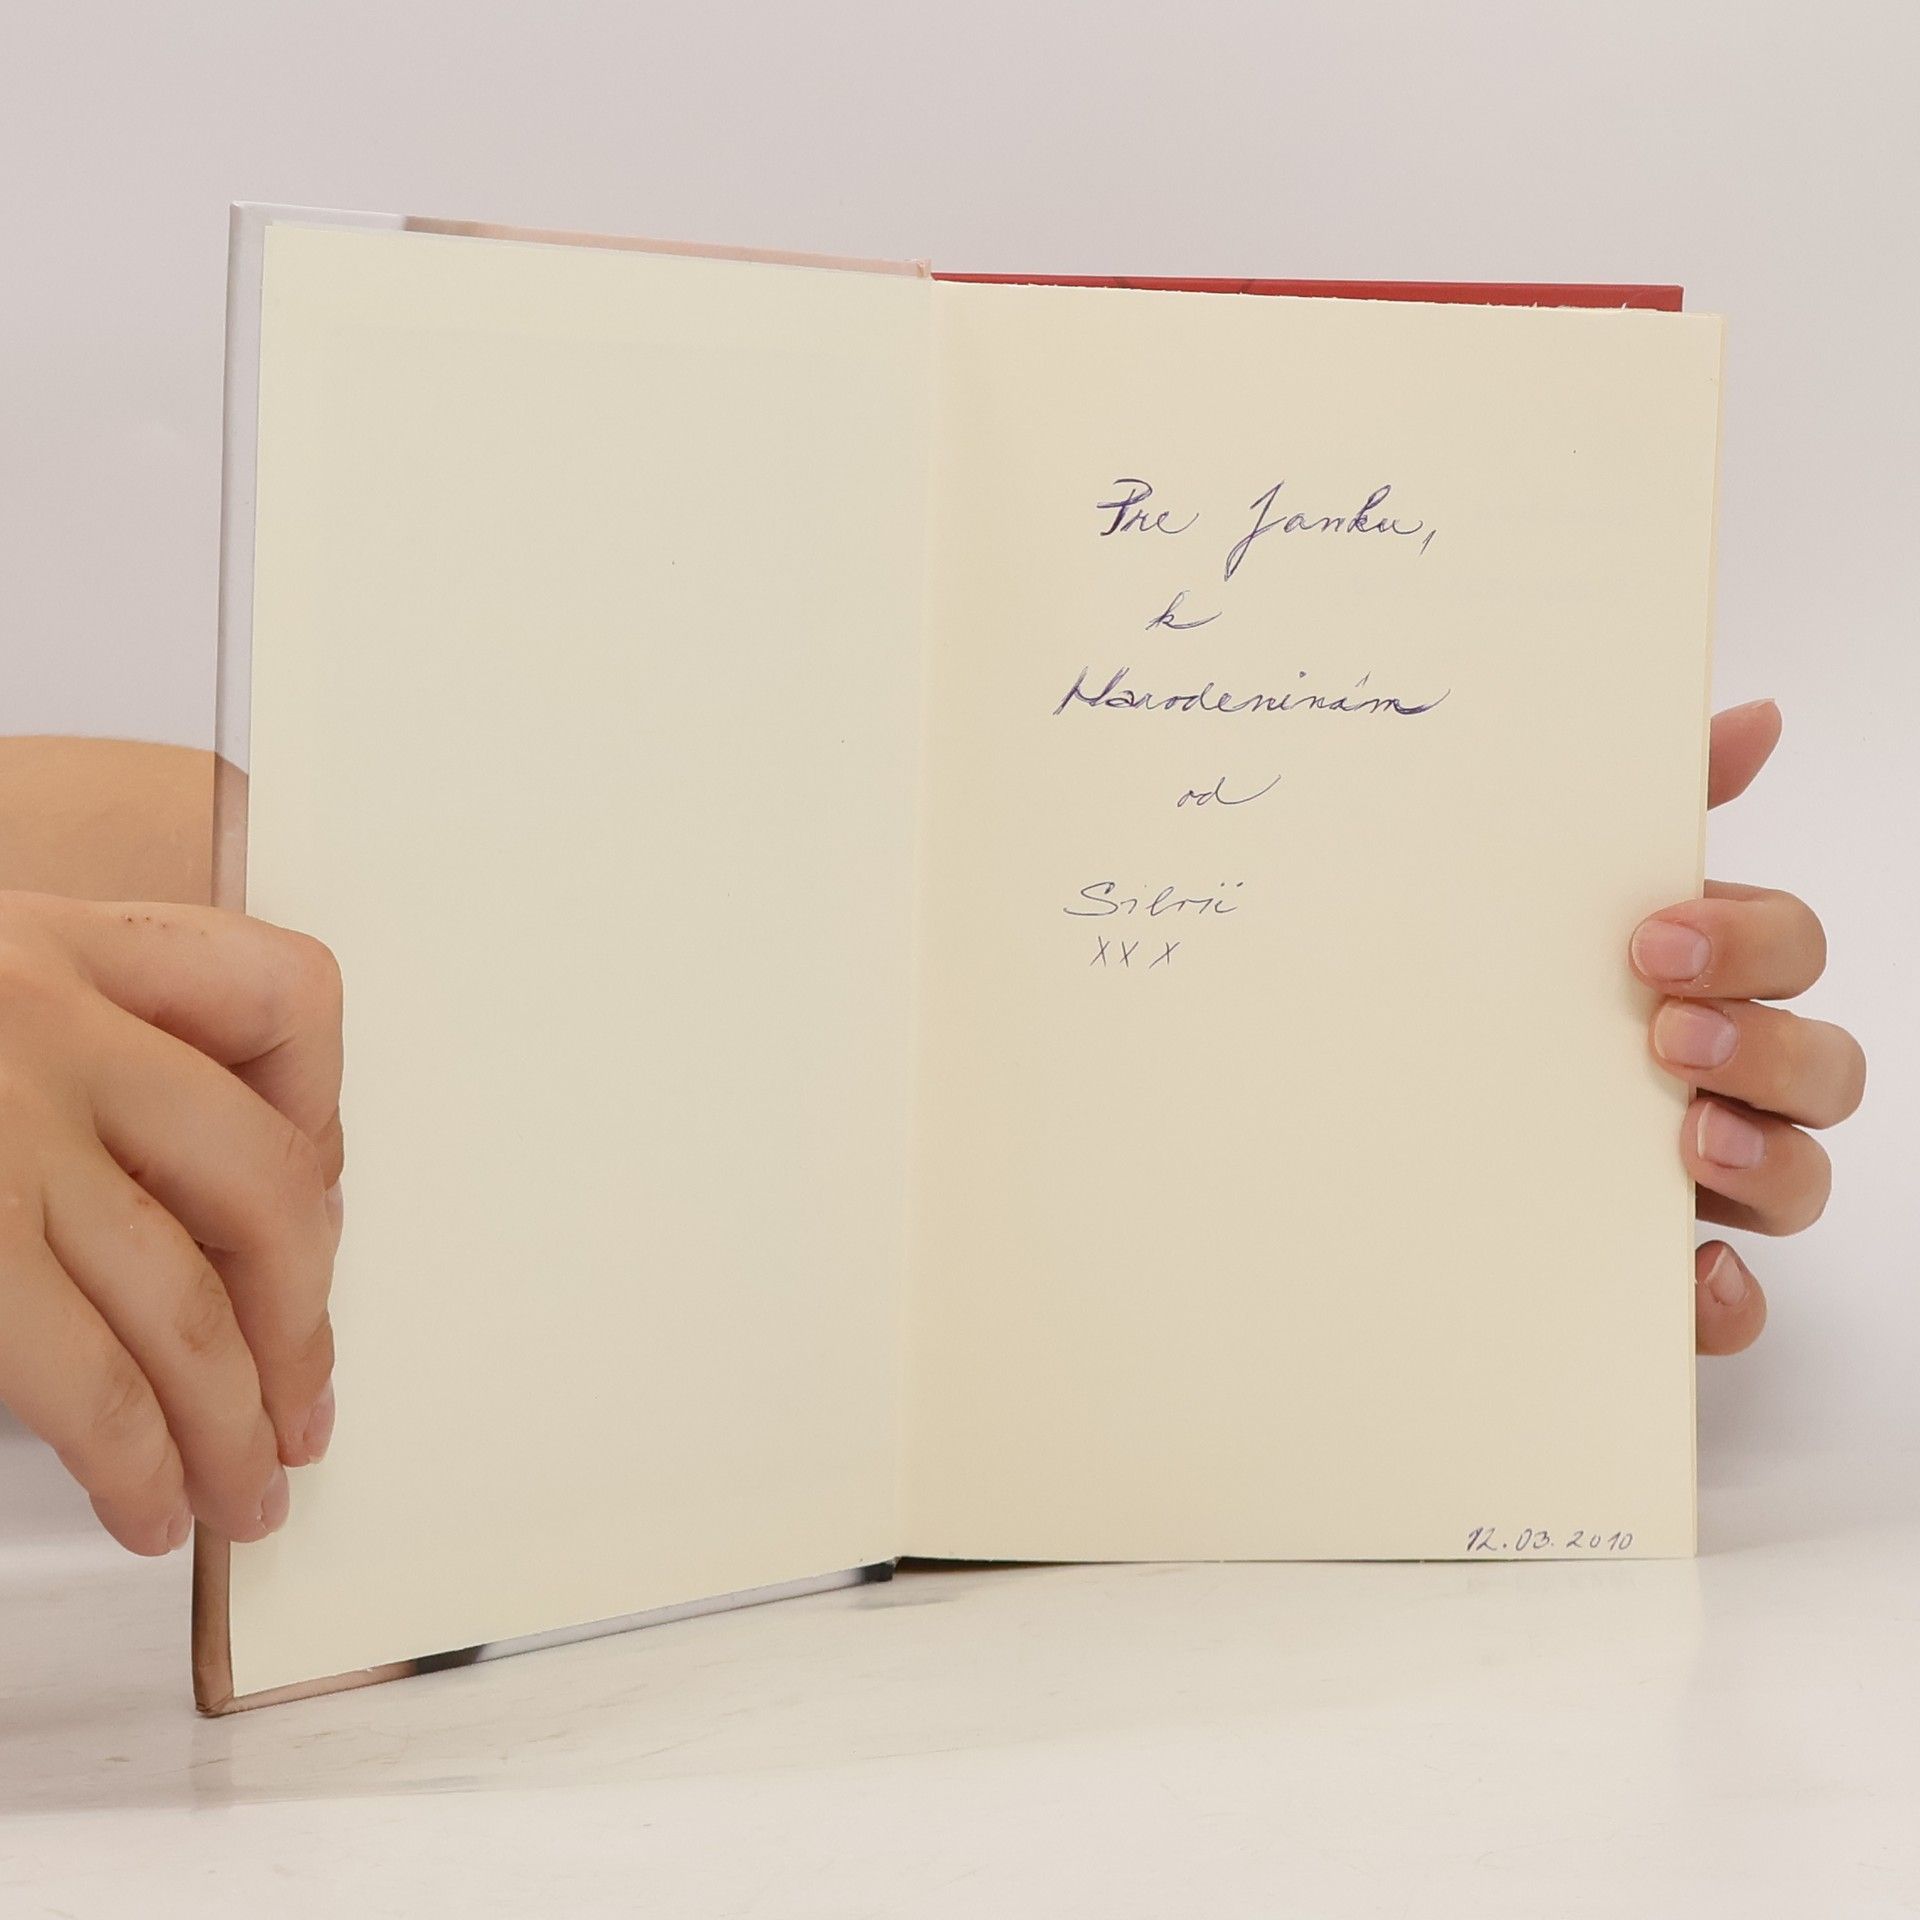 Pre Janku,
k
Narodeninám
od
Silvii
xx x
12.03.2010